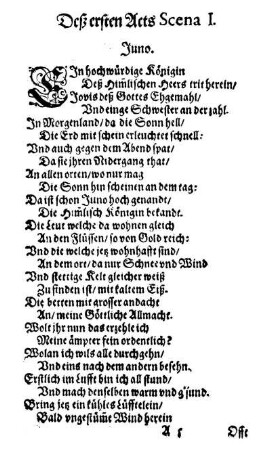 Deß ersten Acts Scena I.
Juno.
EJn hochwürdige Königin
Deß Him̃lischen Heers trit herein/
Jovis deß Gottes Ehgemahl/
Vnd einge Schwester an der zahl.
Jn Morgenland/ da die Sonn hell/
Die Erd mit schein erleuchtet schnell:
Vnd auch gegen dem Abend spat/
Da sie jhren Nidergang that/
An allen orten/ wo nur mag
Die Sonn hin scheinen an dem tag:
Da ist schon Juno hoch genandt/
Die Him̃lisch Königin bekandt.
Die Leut welche da wohnen gleich
An den Flüssen/ so von Gold reich:
Vnd die welche jetz wohnhafft sind/
An dem ort/ da nur Schnee vnd Wind
Vnd stettige Kelt gleicher weiß
Zu finden ist/ mit kaltem Eiß.
Die betten mit grosser andacht
An/ meine Göttliche Allmacht.
Wolt jhr nun das erzehle ich
Meine ämpter fein ordentlich?
Wolan ich wils alle durchgehn/
Vnd eins nach dem andern besehn.
Erstlich im Lufft bin ich all stund/
Vnd mach denselben warm vnd gsund.
Bring jetz ein kühles Lüfftelein/
Bald vngestüm̃e Wind herein
A Offt